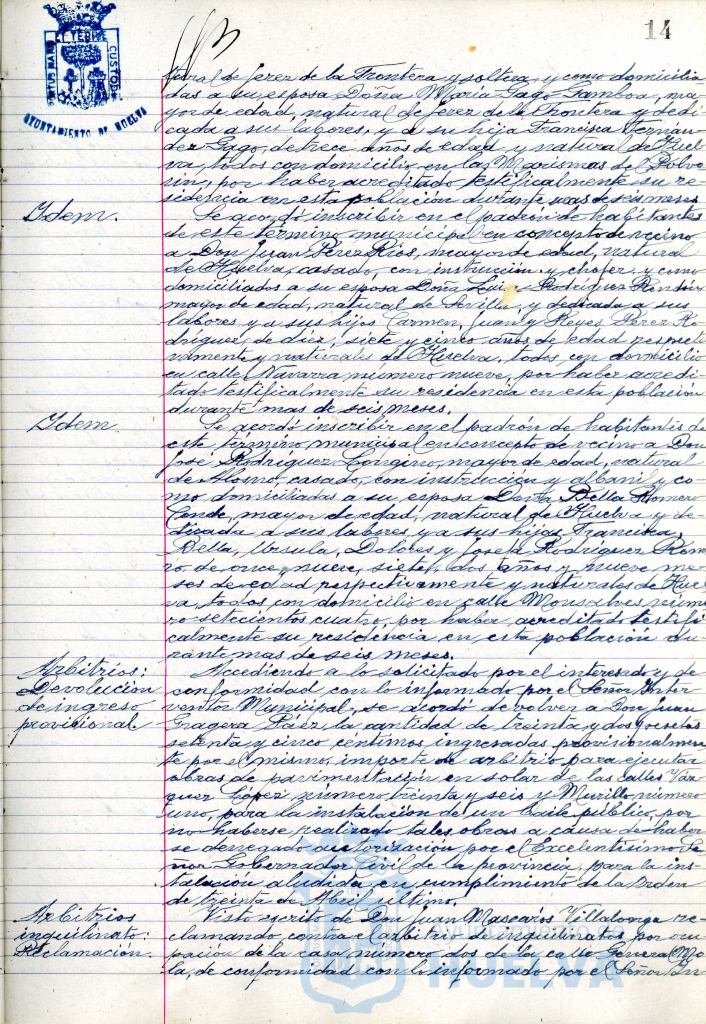 14
PORTUS MARIS ET TERRE CUSTODIA
AYUNTAMIENTO DE HUELVA
tural de Jerez de la Frontera y soltera, y como domicilia
das a su esposa Doña María Gago Gamboa, ma
yor de edad, natural de Jerez de la Frontera y dedi
cada a sus labores, y a su hija Francisca Fernán
dez Gago, de trece años de edad y natural de Huel
va, todos con domicilio en las Marismas del Polvo
rin, por haber acreditado testificalmente su re
sidencia en esta población durante mas de seis meses.
Idem.
Se acordó inscribir en el padrón de habitantes
de este término municipal en concepto de vecino
a Don Juan Pérez Rios, mayor de edad, natural
de Huelva, casado, con instrucción y chofer y como
domiciliados a su esposa Doña Rodríguez
mayor de edad, natural de Sevilla, y dedicada a sus
labores, y a sus hijos Carmen, Juan y Reyes Pérez Ro
dríguez, de diez, siete y cinco años de edad respecti
vamente y naturales de Huelva, todos con domicilio
en calle Navarra número nueve, por haber acredi
tado testificalmente su residencia en esta población
durante mas de seis meses.
Idem
Se acordó inscribir en el padrón de habitantes de
este término municipal en concepto de vecino a Don
José Rodríguez mayor de edad, natural
de Alosno, casado, con instrucción y albañil y co
mo domiciliadas a su esposa Doña Bella Romero
Conde, mayor de edad, natural de Huelva y de
dicada a sus labores y a sus hijas Francisca,
Bella, Ursula, Dolores y Josefa Rodríguez Rome
ro de once, nueve, siete, dos años y nueve me
ses de edad respectivamente y naturales de Huel
va, todos con domicilio en calle Monsalves, núme
ro setecientos cuatro, por haber acreditado testifi
calmente su residencia en esta población du
rante mas de seis meses.
Arbitrios:
Devolución
de ingreso
provisional.
Accediendo a lo solicitado por el interesado y de
conformidad con lo informado por el Señor Inter
ventor Municipal, se acordó devolver a Don Juan
Gragera Páez la cantidad de treinta y dos pesetas
setenta y cinco céntimos, ingresadas provisionalmen
te por el mismo, importe de arbitrio para ejecutar
obras de pavimentación en solar de las calles Váz
quez López número treinta y seis y Murillo número
uno, para la instalación de un baile público, por
no haberse realizado tales obras a causa de haber
se denegado autorización por el Excelentísimo Se
ñor Gobernador Civil de la provincia, para la ins
talación aludida, en cumplimiento de la Orden
de treinta de Abril último.
Arbitrios
inquilinato:
Reclamación.
Visto escrito de Don Juan Mascarós Villalonga re
clamando contra el arbitrio de inquilinatos por ocu
pación de la casa número dos de la calle General Mo
la, de conformidad con lo informado por el Señor In
Ayuntamiento de
HUELVA